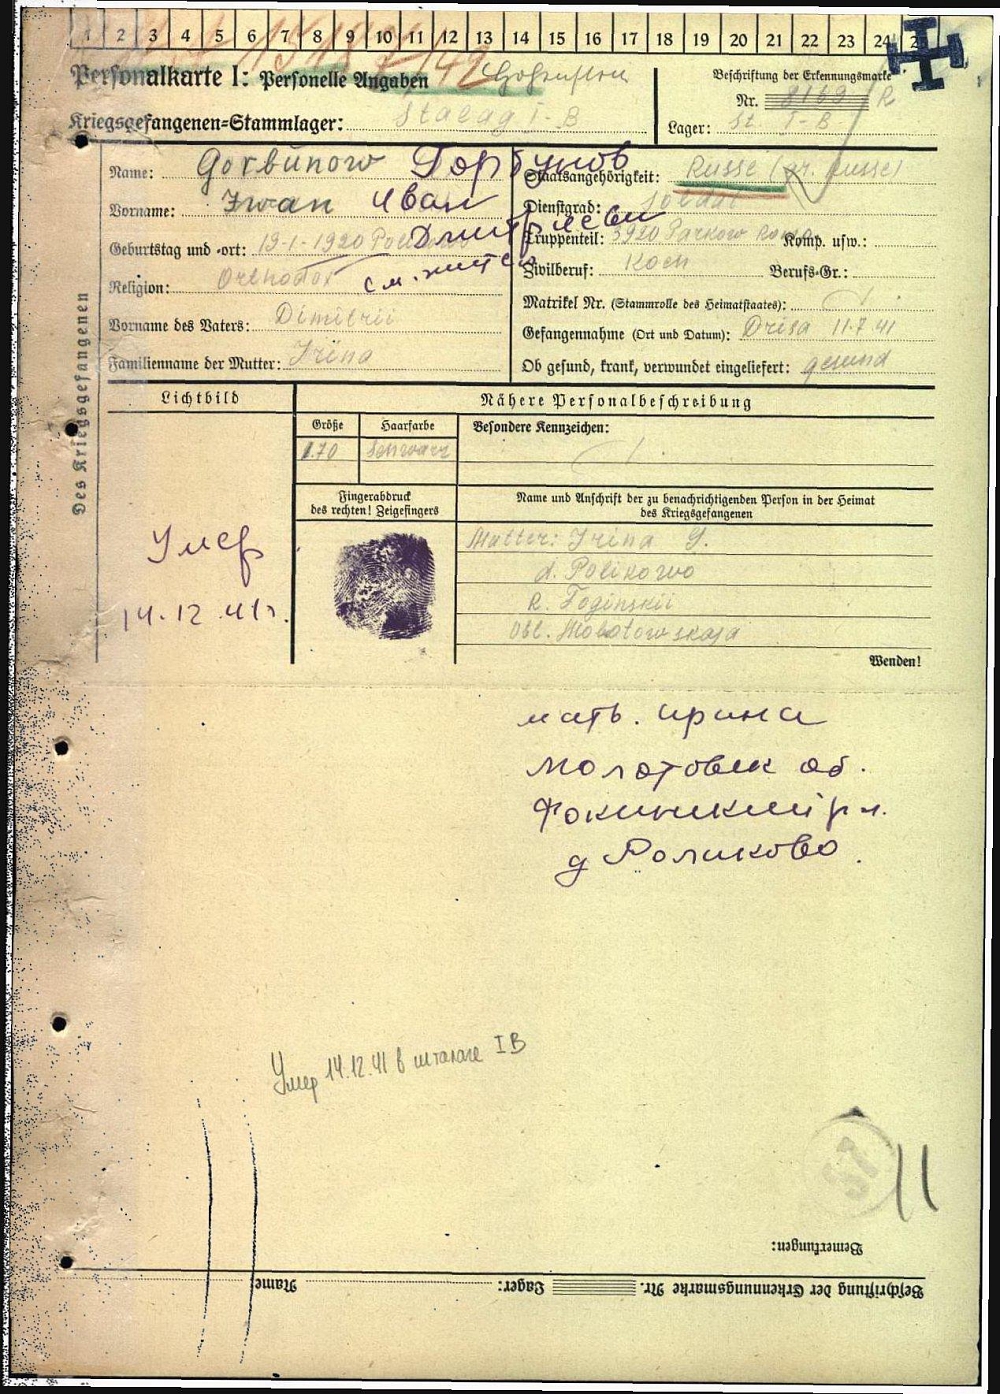 1 2 3 4 5 6 7 8 9 10 11 12 13 14 15 16 17 18 19 20 21 22 23 24 25
Personalkarte I: Personelle Angaben
Beschriftung der Erkennungsmarke
Nr. 8169 R
Kriegsgefangenen-Stammlager: Stalag I-B
Lager: St. I-B
Des Kriegsgefangenen
Name: Gorbunow Горбунов
Vorname: Iwan Иван
Дмитриеви
Geburtstag und -ort: 19-1-1920
Religion: Orthodox
Vorname des Vaters: Dimitrii
Familienname der Mutter: Irina
Staatsangehörigkeit: Russe (gr. russe)
Dienstgrad: Soldat
Truppenteil: 3920 Komp. usw.:
Zivilberuf: Koch Berufs-Gr.:
Matrikel Nr. (Stammrolle des Heimatstaates):
Gefangennahme (Ort und Datum): Drisa 11.7.41
Ob gesund, krank, verwundet eingeliefert: gesund
Lichtbild
Nähere Personalbeschreibung
Größe Haarfarbe Besondere Kennzeichen:
1.70 Schwarz
Fingerabdruck
des rechten! Zeigefingers
Name und Anschrift der zu benachrichtigenden Person in der Heimat
des Kriegsgefangenen
Умер
14.12.41г.
Mutter: Irina G.
d. Polikowo
R. Foginskii
Obl. Molotowskaja
Wenden!
мать. Ирина
Молотовск об.
Фокинский р н.
д Поликово.
Умер 14.12.41 в шталаге IB
11
Bemerkungen:
Beschriftung der Erkennungsmarke Nr. Lager: Name: